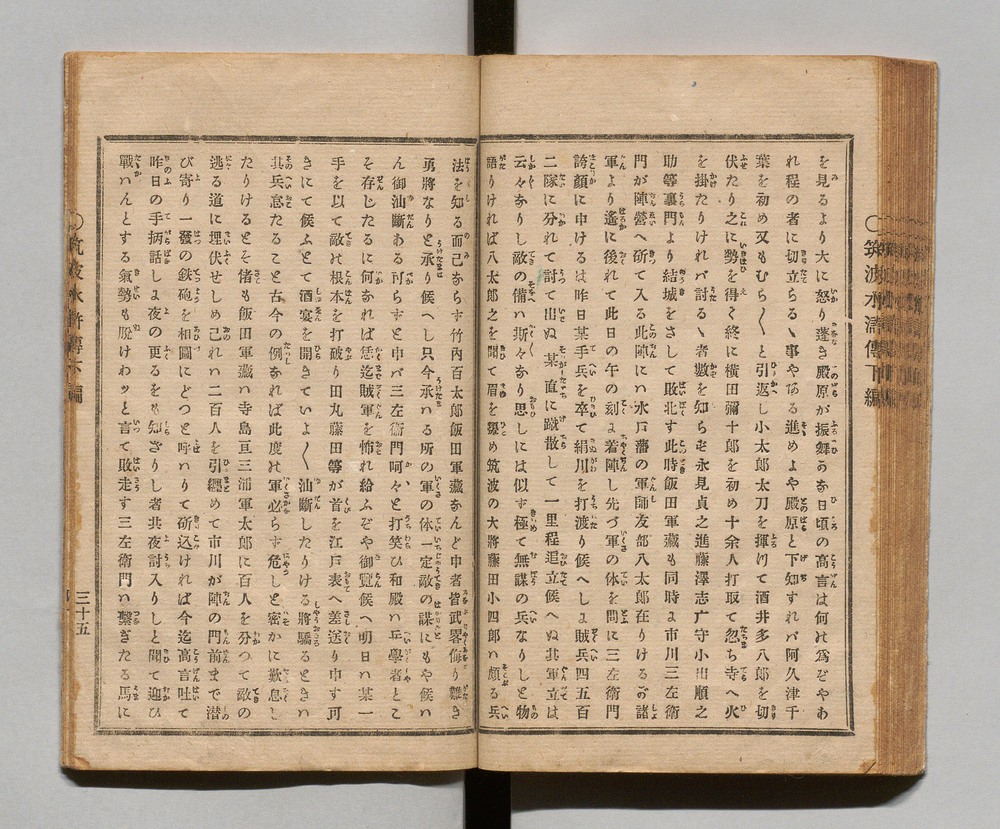 筑波水滸傳下編
を見るより大に怒り蓬き殿原が振舞かお日頃の高言は何れ爲ぞやあ
れ程の者に切立らるゝ事やある進めよや殿原と下知すれバ阿久津千
葉を初め又もむら〳〵と引返し小太郎太刀を揮けて酒井多八郎を切
伏たり之に勢を得て終に横田彌十郎を初め十余人打取て忽ち寺へ火
を掛たりけれバ討るゝ者數を知らを永見貞之進藤澤志广守小出順之
助等裏門より結城をさして敗北す此時飯田軍藏も同時よ市川三左衛
門が陣營へ斫て入る此陣にハ水戸藩の軍師友部八太郎在りけるが諸
軍より遙に後れて此日の午の刻よ着陣し先づ軍の体を問に三左衛門
誇顔に申けるは昨日某手兵を卒て絹川を打渡り候へしょ賊兵四五百
二隊に分れて討て出ぬ某直に蹴散して一里程追立候へぬ其軍立は
云々かりし敵の備ハ斯々かり思しには似す極て無謀の兵なりしと物
語りければ八太郎之を聞て眉を顰め筑波の大將藤田小四郎ハ頗る兵
法を知る而己からす竹内百太郎飯田軍藏かんど申者皆武畧侮り難き
勇將なりと承り候へし只今承ハる所の軍の体一定敵の謀にもや候ハ
ん御油斷ある可らすと申バ三左衛門呵々と打笑ひ和殿ハ兵學者とこ
そ存じたるに何かれば恁迄賊軍を怖れ給ふぞや御覽候へ明日ハ某一
手を以て敵れ根本を打破り田丸藤田等が首を江戸表へ差送り申す可
きにて候ふとて酒宴を開きていよ〳〵油斷したりける將驕るときハ
其兵怠たること古今の例かれば此度れ軍必らす危しと密かに歎息し
たりけるとぞ偖も飯田軍藏ハ寺島亘三浦軍太郎に百人を分つて敵の
逃る道に埋伏せしめ己れハ二百人を引纒めて市川が陣の門前まで潜
び寄り一發の鉄砲を相圖にどつと呼ハりて斫込ければ今迄高言吐て
昨日の手抦話しょ夜の更るをも知ざりし者共夜討入りしと聞て迎ひ
戰ハんとする氣勢も脱けわッと言て敗走す三左衛門ハ繋ぎたる馬に
三十五